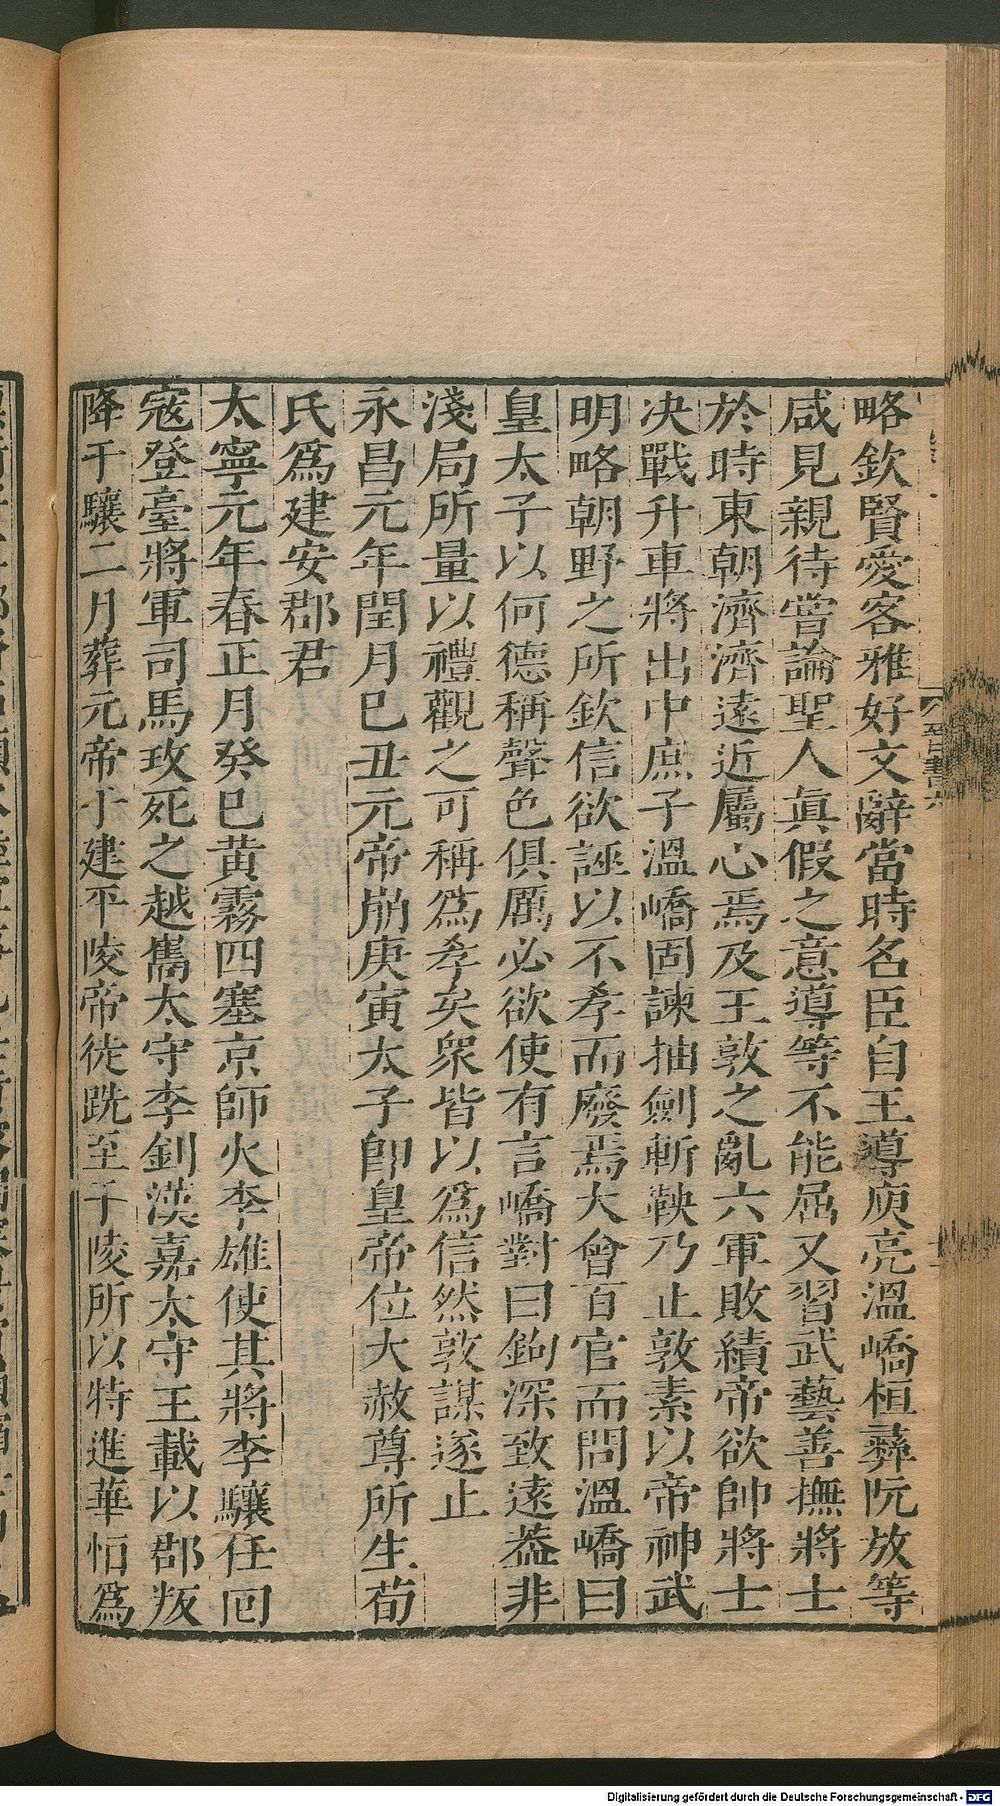 略欽賢愛客雅好文辭當時名臣自王導庾亮溫嶠桓彝阮放等
咸見親待嘗論聖人眞假之意導等不能屈又習武藝善撫將士
於時東朝濟濟遠近屬心焉及王敦之亂六軍敗績帝欲帥將士
决戰升車將出中庶子溫嶠固諫抽劍斬鞅乃止敦素以帝神武
明略朝野之所欽信欲誣以不孝而廢焉大會百官而問溫嶠曰
皇太子以何德稱聲色俱厲必欲使有言嶠對曰鉤深致遠葢非
淺局所量以禮觀之可稱爲孝矣衆皆以爲信然敦謀遂止
永昌元年閏月巳丑元帝崩庚寅太子卽皇帝位大赦尊所生荀
氏爲建安郡君
太寧元年春正月癸巳黄霧四塞京師火李雄使其將李驤任回
寇登臺將軍司馬玫死之越雟太守李釗漢嘉太守王載以郡叛
降于驤二月葬元帝于建平陵帝徒跣至于陵所以特進華恒爲
Digitalisierung gefördert durch die Deutsche Forschungsgemeinschaft - DFG